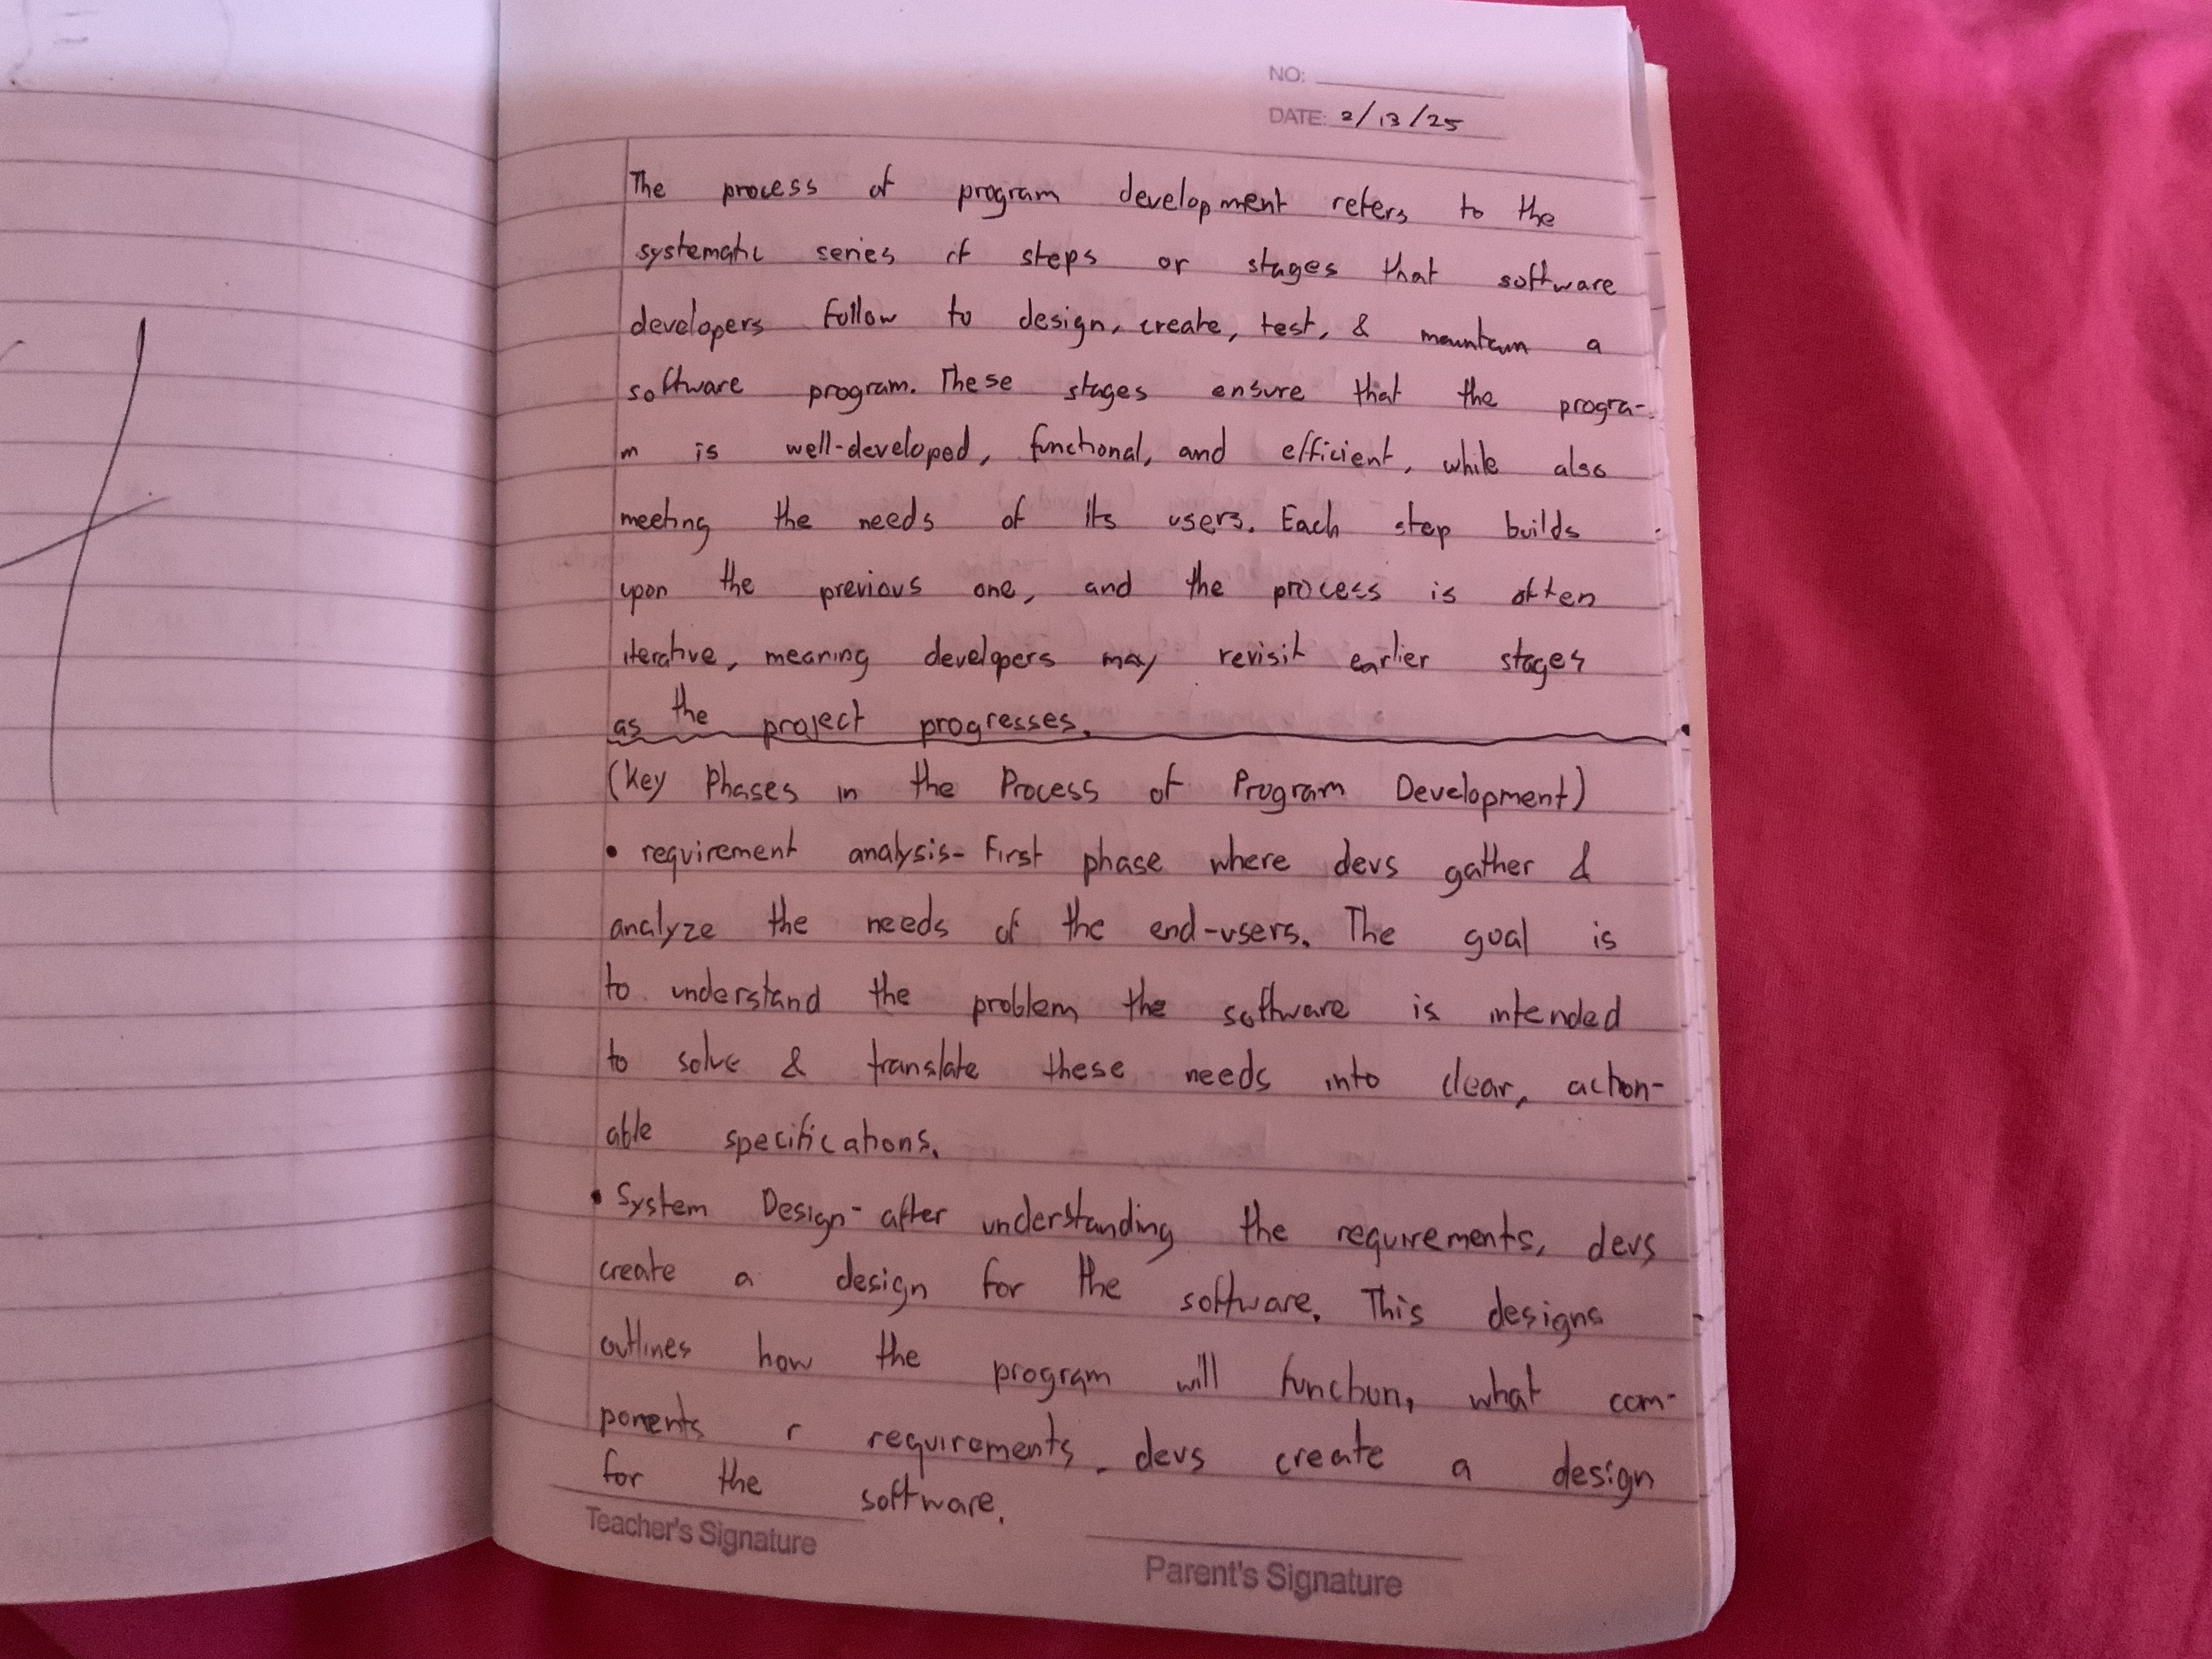 NO:
DATE: 2/13/25
The process of program development refers to the
systematic series if steps or stages that software
developers follow to design, create, test, & maintain a
software program. These stages ensure that the progra-
m is well-developed, functional, and efficient, while also
meeting the needs of its users. Each step builds
upon the previous one, and the process is often
iterative, meaning developers may revisit earlier stages
as the project progresses.
(Key Phases in the Process of Program Development)
• requirement analysis- First phase where devs gather &
analyze the needs of the end-users. The goal is
to understand the problem the software is intended
to solve & translate these needs into clear, action-
able specifications.
• System Design- after understanding the requirements, devs
create a design for the software. This designs
outlines how the program will function, what com-
ponents r requirements, devs create a design
for the software.
Teacher's Signature
Parent's Signature